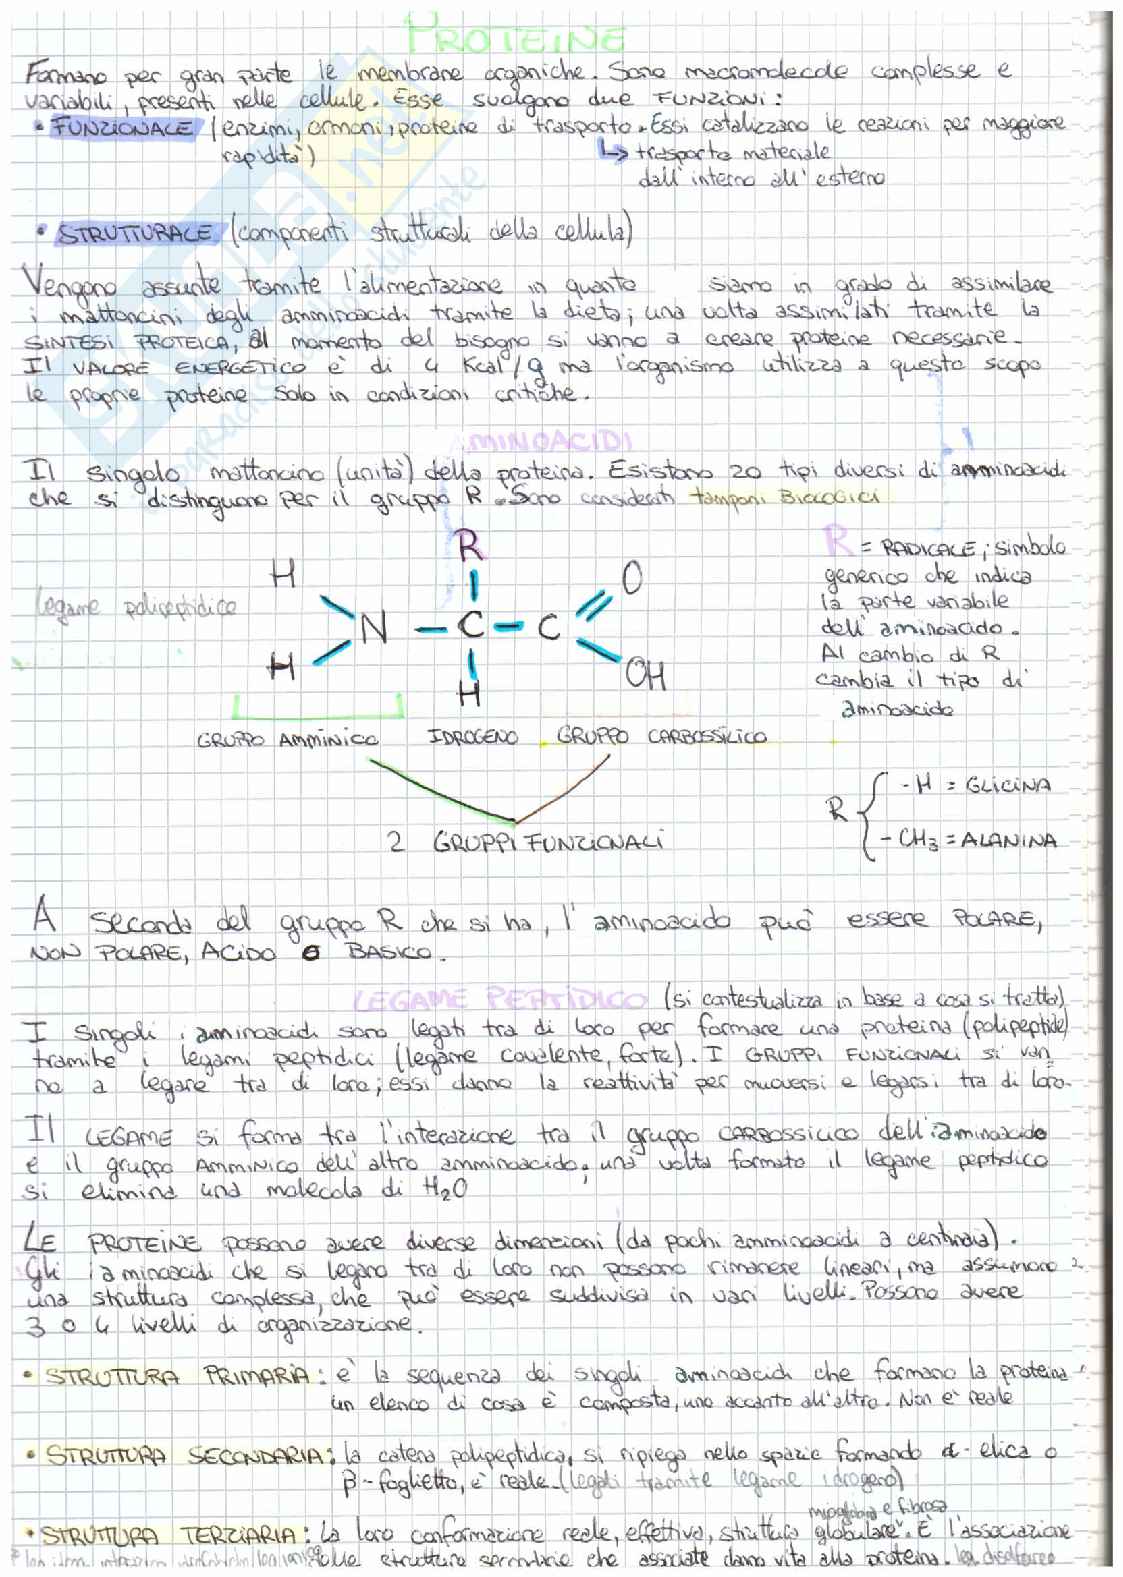 PROTEINE
Formano per gran parte le membrane organiche. Sono macromolecole complesse e
variabili, presenti nelle cellule. Esse svolgono due FUNZIONI:
• FUNZIONALE (enzimi, ormoni, proteine di trasporto. Essi catalizzano le reazioni per maggiore
rapidità)
↳ trasporto materiale
dall'interno all'esterno
• STRUTTURALE (componenti strutturali della cellula)
Vengono assunte tramite l'alimentazione in quanto siamo in grado di assimilare
i mattoncini degli amminoacidi tramite la dieta; una volta assimilati tramite la
SINTESI PROTEICA, al momento del bisogno si vanno a creare proteine necessarie.
Il VALORE ENERGETICO è di 4 Kcal/g ma l'organismo utilizza a questo scopo
le proprie proteine solo in condizioni critiche.
MINOACIDI
Il singolo mattoncino (unità) della proteina. Esistono 20 tipi diversi di amminoacidi
che si distinguono per il gruppo R. Sono considerati tamponi BIOLOGICI
R
H
O
legame polipeptidico
N – C – C
H
H
OH
R = RADICALE; simbolo
generico che indica
la parte variabile
dell'aminoacido.
Al cambio di R
cambia il tipo di
aminoacido
GRUPPO AMMINICO IDROGENO GRUPPO CARBOSSILICO
2 GRUPPI FUNZIONALI
R
-H = GLICINA
-CH3 = ALANINA
A seconda del gruppo R che si ha, l'aminoacido può essere POLARE,
NON POLARE, ACIDO O BASICO.
LEGAME PEPTIDICO (si contestualizza in base a cosa si tratta)
I singoli aminoacidi sono legati tra di loro per formare una proteina (polipeptide)
tramite i legami peptidici (legame covalente, forte). I GRUPPI FUNZIONALI si van
no a legare tra di loro; essi danno la reattività per muoversi e legarsi tra di loro.
Il LEGAME si forma tra l'interazione tra il gruppo CARBOSSILICO dell'aminoacido
e il gruppo AMMINICO dell'altro amminoacido; una volta formato il legame peptidico
si elimina una molecola di H2O
LE PROTEINE possono avere diverse dimenzioni (da pochi amminoacidi a centinaia).
Gli aminoacidi che si legano tra di loro non possono rimanere lineari, ma assumono
una struttura complessa, che può essere suddivisa in vari livelli. Possono avere
3 o 4 livelli di organizzazione.
• STRUTTURA PRIMARIA: è la sequenza dei singoli aminoacidi che formano la proteina
un elenco di cosa è composta, uno accanto all'altro. Non è reale
• STRUTTURA SECONDARIA: la catena polipeptidica, si ripiega nello spazio formando α-elica o
β-foglietto, è reale. (legati tramite legame idrogeno)
mioglobina e fibrosa
• STRUTTURA TERZIARIA: la loro conformazione reale, effettiva, struttura globulare. È l'associazione
delle strutture secondarie che associate danno vita alla proteina.